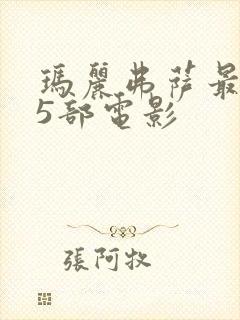 瑪麗弗薩最
5部電影
張阿牧